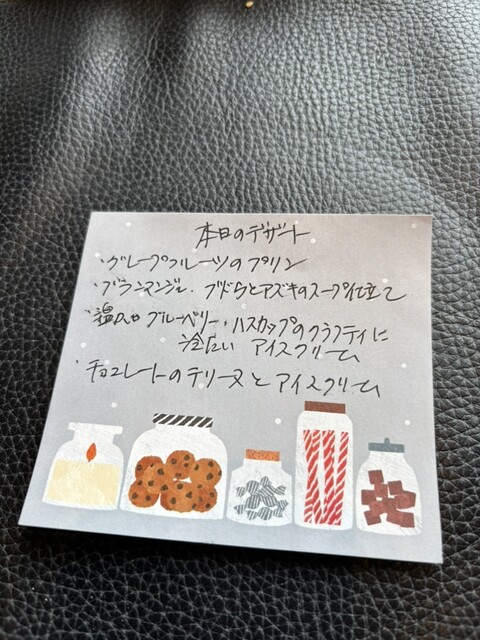 本日のデザート
・グレープフルーツのプリン
・ブランマンジェ、ブドウとアズキのスープ仕立て
・温かいブルーベリー・ハスカップのクラフティに
冷たい アイスクリーム
・チョコレートのテリーヌとアイスクリーム